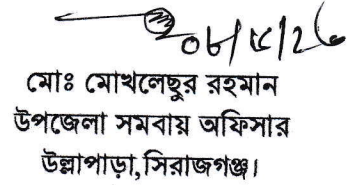 ০৮/৫/২৬
মোঃ মোখলেছুর রহমান
উপজেলা সমবায় অফিসার
উল্লাপাড়া,সিরাজগঞ্জ।